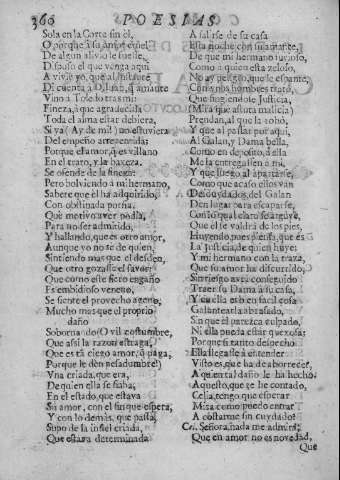 360 POESIAS
Sola en la Corte sin èl,
O porque à su amor cruel
De algun alivio le fuesse,
Dispuso el que venga aqui
A vivir yo, que al instante
Di cuenta à Don Juan, que amante
Vino à Toledo tras mi:
Fineza, à que agradecida
Toda el alma estar debiera,
Si ya (Ay de mi!) no estuviera
Del empeño arrepentida:
Porque el amor, que es villano
En el trato, y la baxeza,
Se ofende de la fineza:
Pero bolviendo à mi hermano,
Sabere que èl ha adquirido,
Con obstinada porfia,
Què motivo aver podia,
Para no ser admitido,
Y hallando, que es otro amor,
Aunque yo no sè de quien,
Sintiendo mas que el desdèn,
Que otro gozasse el favor:
Que como este fiero engaño
Es embidioso veneno,
Se siente el provecho ageno,
Mucho mas que el proprio
daño
Sobornando (O vil costumbre,
Que assi la razon estraga,
Que es tà ciego amor, q̃ paga,
Porque le dèn pesadumbre!)
Vna criada, que era,
De quien ella se fiaba;
En el estado, que estava
Su amor, con el fin que espera,
Y con lo demàs, que passa,
Supo de la infiel criada,
Que estava determinada
A salirse de su casa
Esta noche con su amante,
De que mi hermano furioso,
Como à quien està zeloso,
No ay peligro, que le espante,
Con unos hombres tratò,
Que fingiendose Justicia,
(Mira què astuta malicia)
Prendan, al que la robò,
Y que al passar por aqui,
Al Galan, y Dama bella,
Como en deposito, à ella
Me la entregassen à mi,
Y que luego al apartarse,
Como que acaso ellos van
Descuydados, del Galan
Den lugar para escaparse,
Con lo qual claro se arguye,
Que èl se valdrà de los pies,
Huyendo, pues piensa, que es
La Justicia, de quien huye:
Y mi hermano con la traza,
Que su amor ha discurrido,
Sin riesgo avrà conseguido
Traer su Dama à su casa,
Y en ella es bien facil cosa
Galantearla abrasado,
Sin que èl parezca culpado,
Ni ella pueda estar quexosa:
Porque si tarito despecho
Ella llegasse à entender
Visto es, que ha de aborrecer,
A quien tal daño le ha hecho.
Aquesto, que te he contado,
Celia, tengo que esperar
Mira como puedo entrar
A costarme sin cuydado?
Cel. Señora, nada me admira;
Que en amor no es novedad,
Que